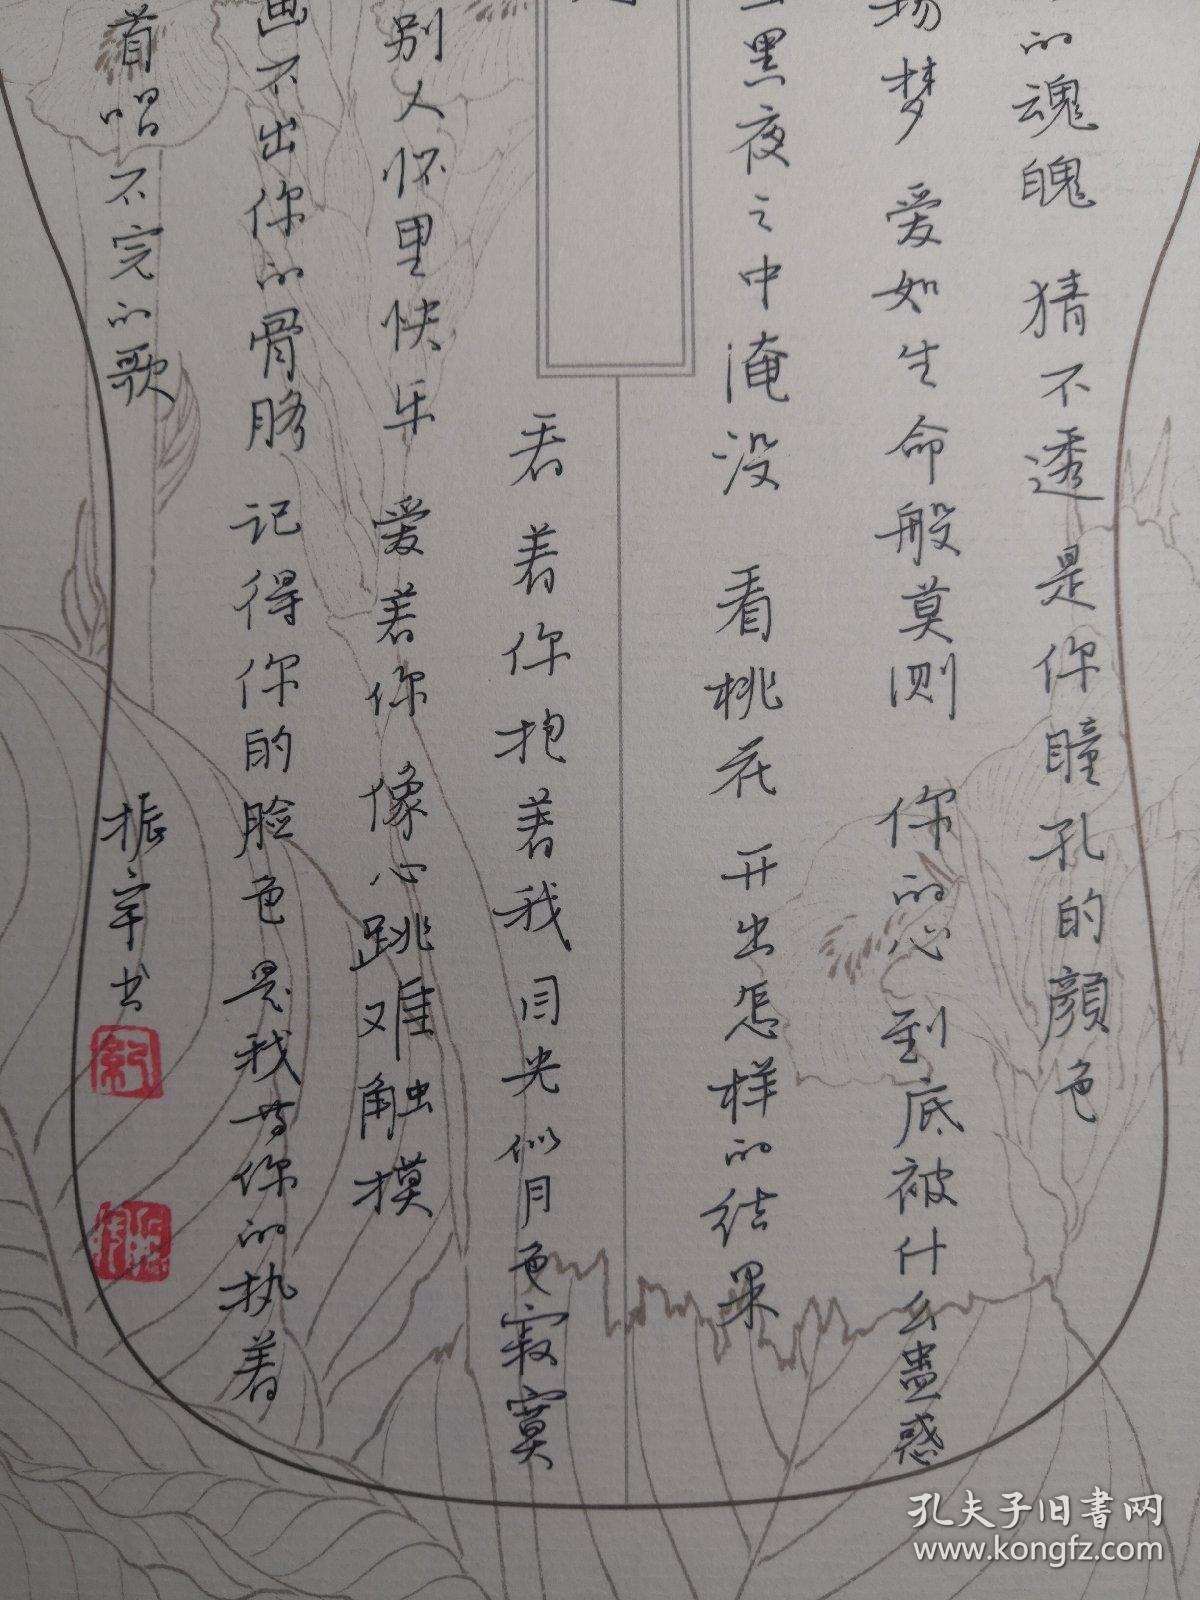 的魂魄 猜不透 是你瞳孔的颜色
扬梦 爱如生命般莫测 你的心 到底被什么蛊惑
黑夜之中淹没 看桃花 开出怎样的结果
看着你抱着我 目光似月色寂寞
别人怀里快乐 爱着你 像心跳难触摸
画不出你的骨骼 记得你的脸色 是我等你的执着
首唱不完的歌 振宇书
孔夫子旧书网
www.kongfz.com